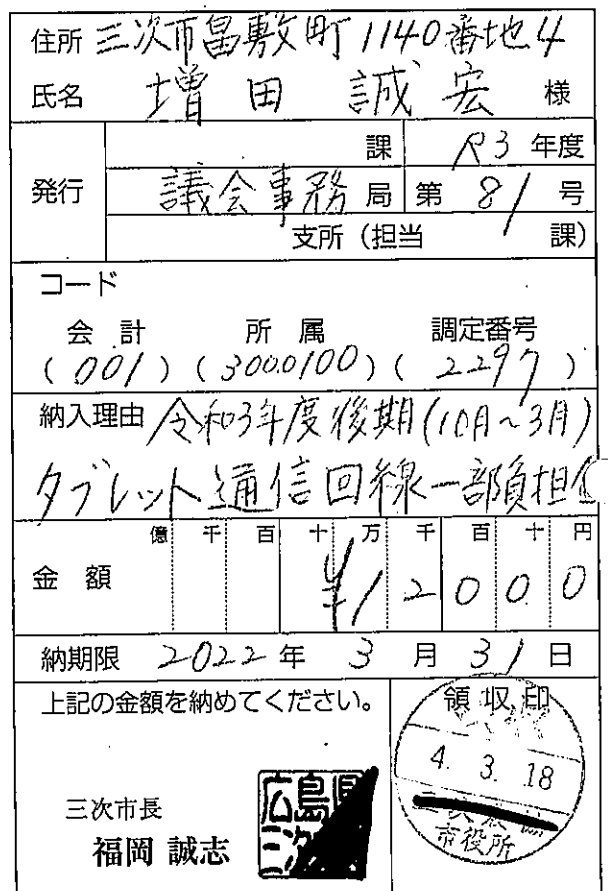 住所 三次市畠敷町1140番地4
氏名 増田 誠宏 様
発行
課 R3 年度
議会事務局 第 81 号
支所(担当 課)
コード
会計 所属 調定番号
(001) (3000100) (2297)
納入理由 令和3年度後期(10月~3月)
タブレット通信回線一部負担金
億 千 百 十 万 千 百 十 円
金額 ¥12000
納期限 2022年 3月 31日
上記の金額を納めてください。
領収印
4. 3. 18
市役所
三次市長
福岡 誠志
広島県
三次